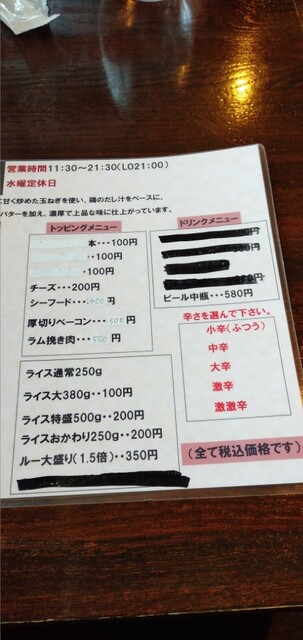 営業時間11:30～21:30(LO21:00)
水曜定休日
甘く炒めた玉ねぎを使い、鶏のだし汁をベースに、
バターを加え、濃厚で上品な味に仕上がっています。
トッピングメニュー
本・・・100円
・・100円
・・・100円
チーズ・・・200円
シーフード・・・400円
厚切りベーコン・・・500円
ラム挽き肉・・・500円
ドリンクメニュー
ビール中瓶・・・580円
辛さを選んで下さい。
小辛(ふつう)
中辛
大辛
激辛
激激辛
ライス通常250g
ライス大380g・・100円
ライス特盛500g・・200円
ライスおかわり250g・・200円
ルー大盛り(1.5倍)・・350円
(全て税込価格です)